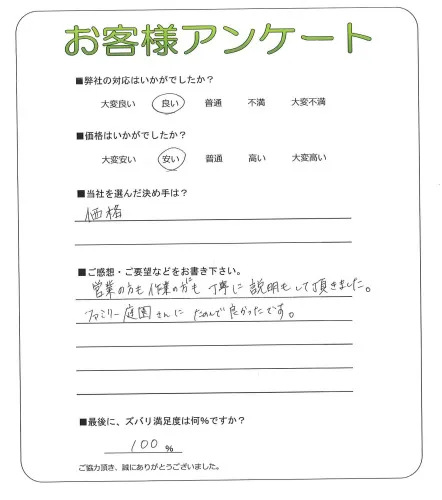 お客様アンケート
■弊社の対応はいかがでしたか？
大変良い 良い 普通 不満 大変不満
■価格はいかがでしたか？
大変安い 安い 普通 高い 大変高い
■当社を選んだ決め手は？
価格
■ご感想・ご要望などをお書き下さい。
営業の方も作業の方も丁寧に説明もして頂きました。
ファミリー庭園さんにたのんで良かったです。
■最後に、ズバリ満足度は何%ですか？
100 %
ご協力頂き、誠にありがとうございました。